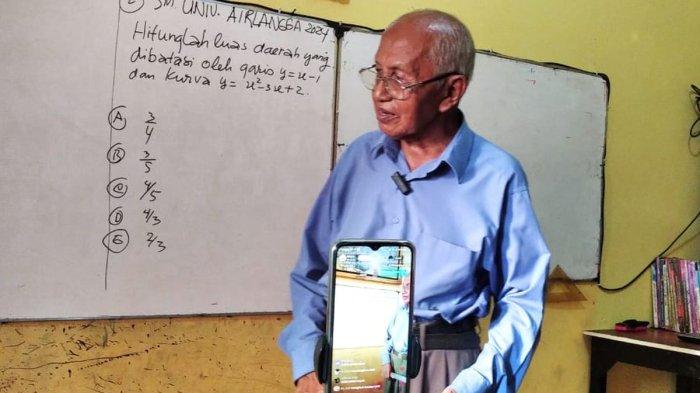 SM. UNIV. AIRLANGGA 2024
Hitunglah luas daerah yang
dibatasi oleh garis y = x - 1
dan kurva y = x² - 3x + 2.
A 3/4
B 3/5
C 4/5
D 4/3
E 2/3